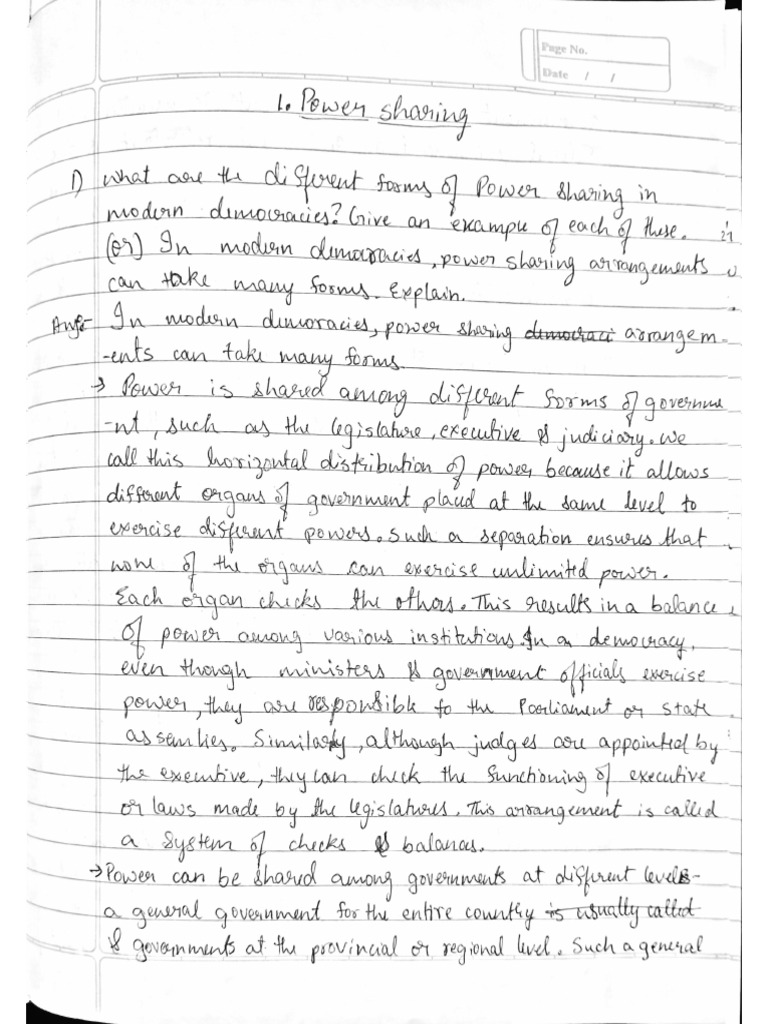 Page No.
Date / /
1. Power sharing
1) what are the different forms of Power sharing in
modern democracies? Give an example of each of these.
(or) In modern democracies, power sharing arrangements
can take many forms. Explain.
Ans:- In modern demoracies, power sharing democraci arrangem-
-ents can take many forms.
→ Power is shared among different forms of governme
-nt, such as the legislature, executive & judiciary. We
call this horizontal distribution of power because it allows
different organs of government placed at the same level to
exercise different powers. Such a separation ensures that
none of the organs can exercise unlimited power.
Each organ checks the others. This results in a balance
of power among various institutions. In a democracy,
even though ministers & government officials exercise
power, they are responsible to the Parliament or state
assemlies. Similarly, although judges are appointed by
the executive, they can check the functioning of executive
or laws made by the legislatures. This arrangement is called
a system of checks & balances.
→ Power can be shared among governments at different levels-
a general government for the entire country is usually called
& governments at the provincial or regional level. Such a general